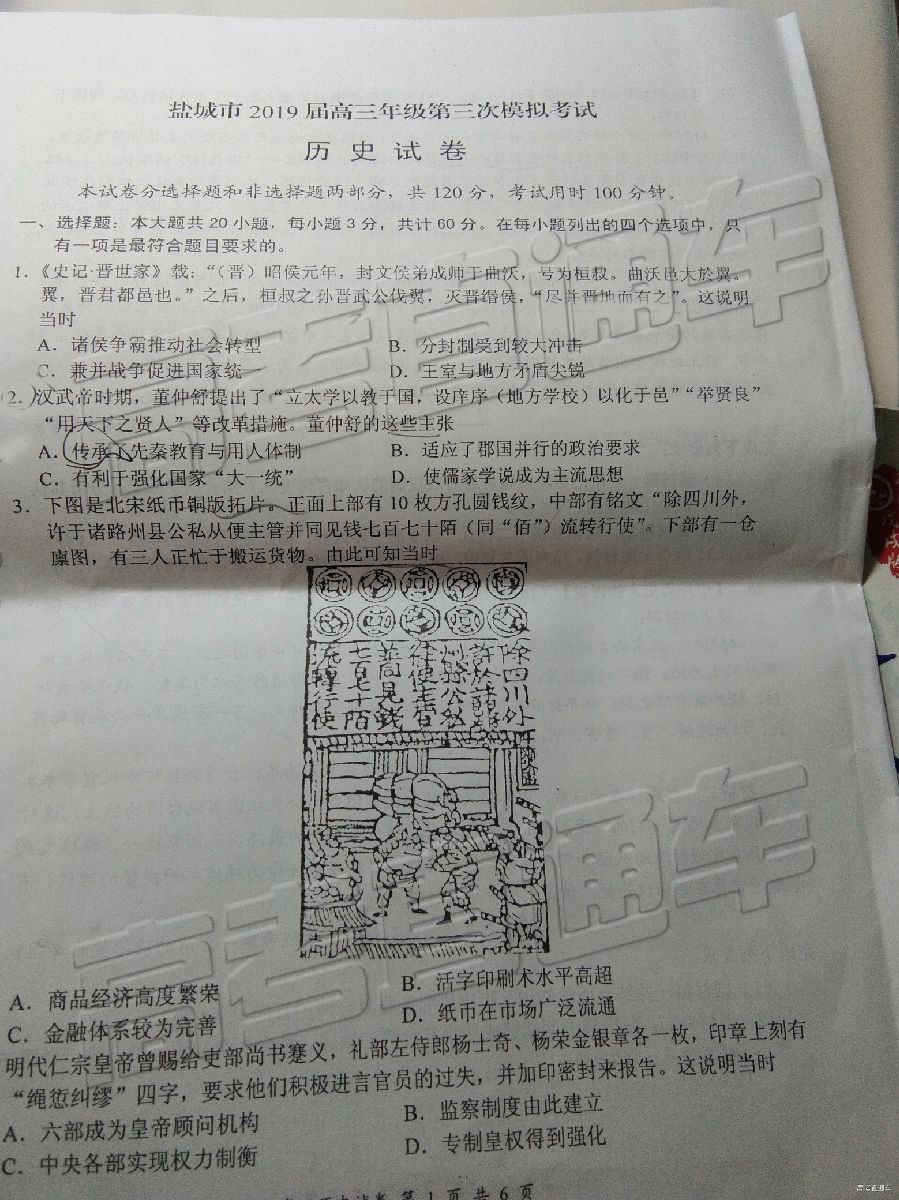 盐城市 2019 届高三年级第三次模拟考试
历 史 试 卷
本试卷分选择题和非选择题两部分，共 120 分，考试用时 100 分钟。
一、选择题：本大题共 20 小题，每小题 3 分，共计 60 分。在每小题列出的四个选项中，只
有一项是最符合题目要求的。
1．《史记·晋世家》载：“（晋）昭侯元年，封文侯弟成师于曲沃，号为桓叔。曲沃邑大於翼。
翼，晋君都邑也。”之后，桓叔之孙晋武公伐翼，灭晋缗侯，“尽并晋地而有之”。这说明
当时
A．诸侯争霸推动社会转型 B．分封制受到较大冲击
C．兼并战争促进国家统一 D．王室与地方矛盾尖锐
2．汉武帝时期，董仲舒提出了“立太学以教于国，设庠序（地方学校）以化于邑”“举贤良”
“用天下之贤人”等改革措施。董仲舒的这些主张
A．传承了先秦教育与用人体制 B．适应了郡国并行的政治要求
C．有利于强化国家“大一统” D．使儒家学说成为主流思想
3．下图是北宋纸币铜版拓片。正面上部有 10 枚方孔圆钱纹，中部有铭文“除四川外，
许于诸路州县公私从便主管并同见钱七百七十陌（同“佰”）流转行使”。下部有一仓
廪图，有三人正忙于搬运货物。由此可知当时
除四川外
許於諸路
州縣公私
從便主管
並同見錢
七百七十陌
流轉行使
A．商品经济高度繁荣 B．活字印刷术水平高超
C．金融体系较为完善 D．纸币在市场广泛流通
明代仁宗皇帝曾赐给吏部尚书蹇义，礼部左侍郎杨士奇、杨荣金银章各一枚，印章上刻有
“绳愆纠缪”四字，要求他们积极进言官员的过失，并加印密封来报告。这说明当时
A．六部成为皇帝顾问机构 B．监察制度由此建立
C．中央各部实现权力制衡 D．专制皇权得到强化
第 1 页 共 6 页
高考直通车
高考直通车
高考直通车